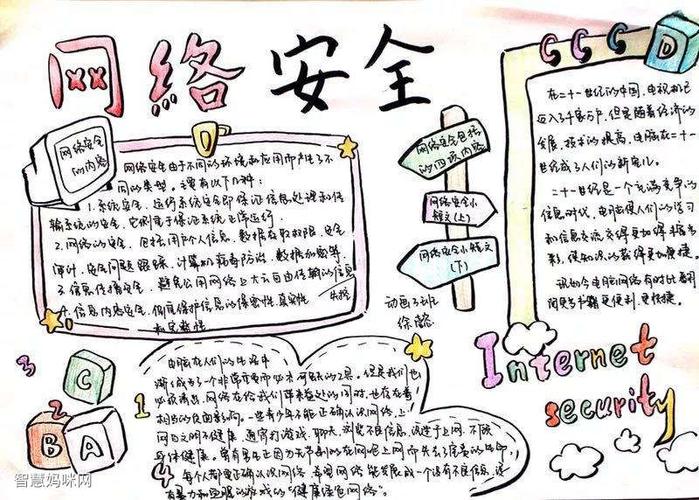 网络安全
网络安全
的内容
网络安全由于不同的环境和应用而产生了不
同的类型。主要有以下几种：
1.系统安全、运行系统安全即保证信息处理和传
输系统的安全、它侧重于保证系统正常运行。
2.网络的安全、包括用户个人信息、数据存取权限、安全
审计、安全问题跟踪、计算机病毒防治、数据加密等。
3.信息传播安全、避免公用网络上大云自由传输的信息
失控
4.信息内容安全、侧重保护信息的保密性、真实性
和完整性
网络安全包括
的四项内容
网络安全小
短文(上)
网络安全小短文
(下)
动画
徐懿
在二十一世纪的中国，电视机已
迈入了千家万户，但是随着经济的
发展，技术的提高，电脑在二十一
世纪成了人们的新宠儿。
二十一世纪是一个充满竞争的
信息时代，电脑使人们的学习
和信息交流变得更加
彩，使知识的获得更加便捷。
现如今电脑网络有时比翻
阅更书籍更便利、更快捷。
Internet
security
3
C
2
B A
1
4
电脑在人们的生活中
渐渐成为了一个非常重要而必不可缺的工具。但是我们也
必须清楚，网络在给我们带来益处的同时，也存在着
相当的负面影响。一些青少年不能正确认识网络，上
网日文明不健康，通宵打游戏、聊天、浏览不良信息，沉迷于上网，不顾
身体健康。
每个人都要正确认识网络，希望网络能发展成一个没有不良信息，没
有暴力和血腥的游戏的“健康绿色网络”。
智慧妈咪网